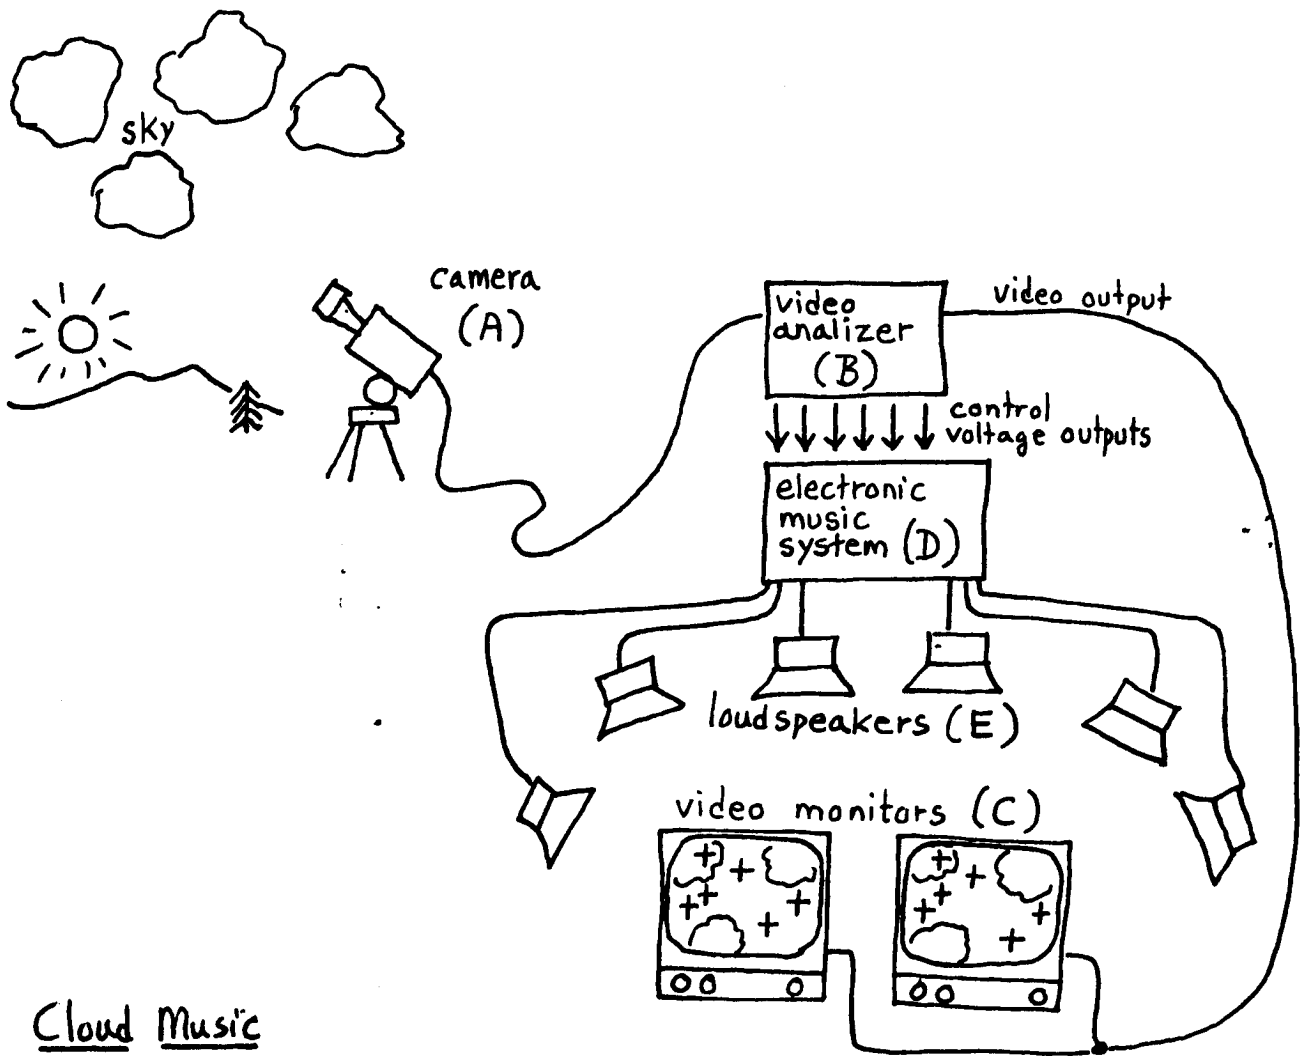 sky
camera
(A)
video
analizer
(B)
video output
control
voltage outputs
electronic
music
system (D)
loudspeakers (E)
video monitors (C)
Cloud Music